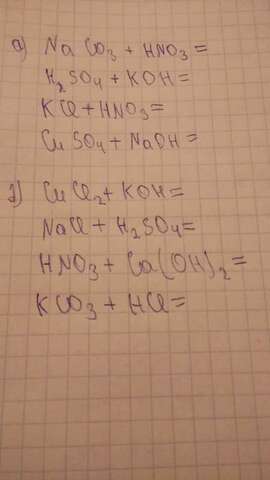 а) Na CO₃ + HNO₃ =
H₂SO₄ + KOH =
KCl + HNO₃ =
Cu SO₄ + NaOH =
д) CuCl₂ + KOH =
NaCl + H₂SO₄ =
HNO₃ + Ca(OH)₂ =
KCO₃ + HCl =